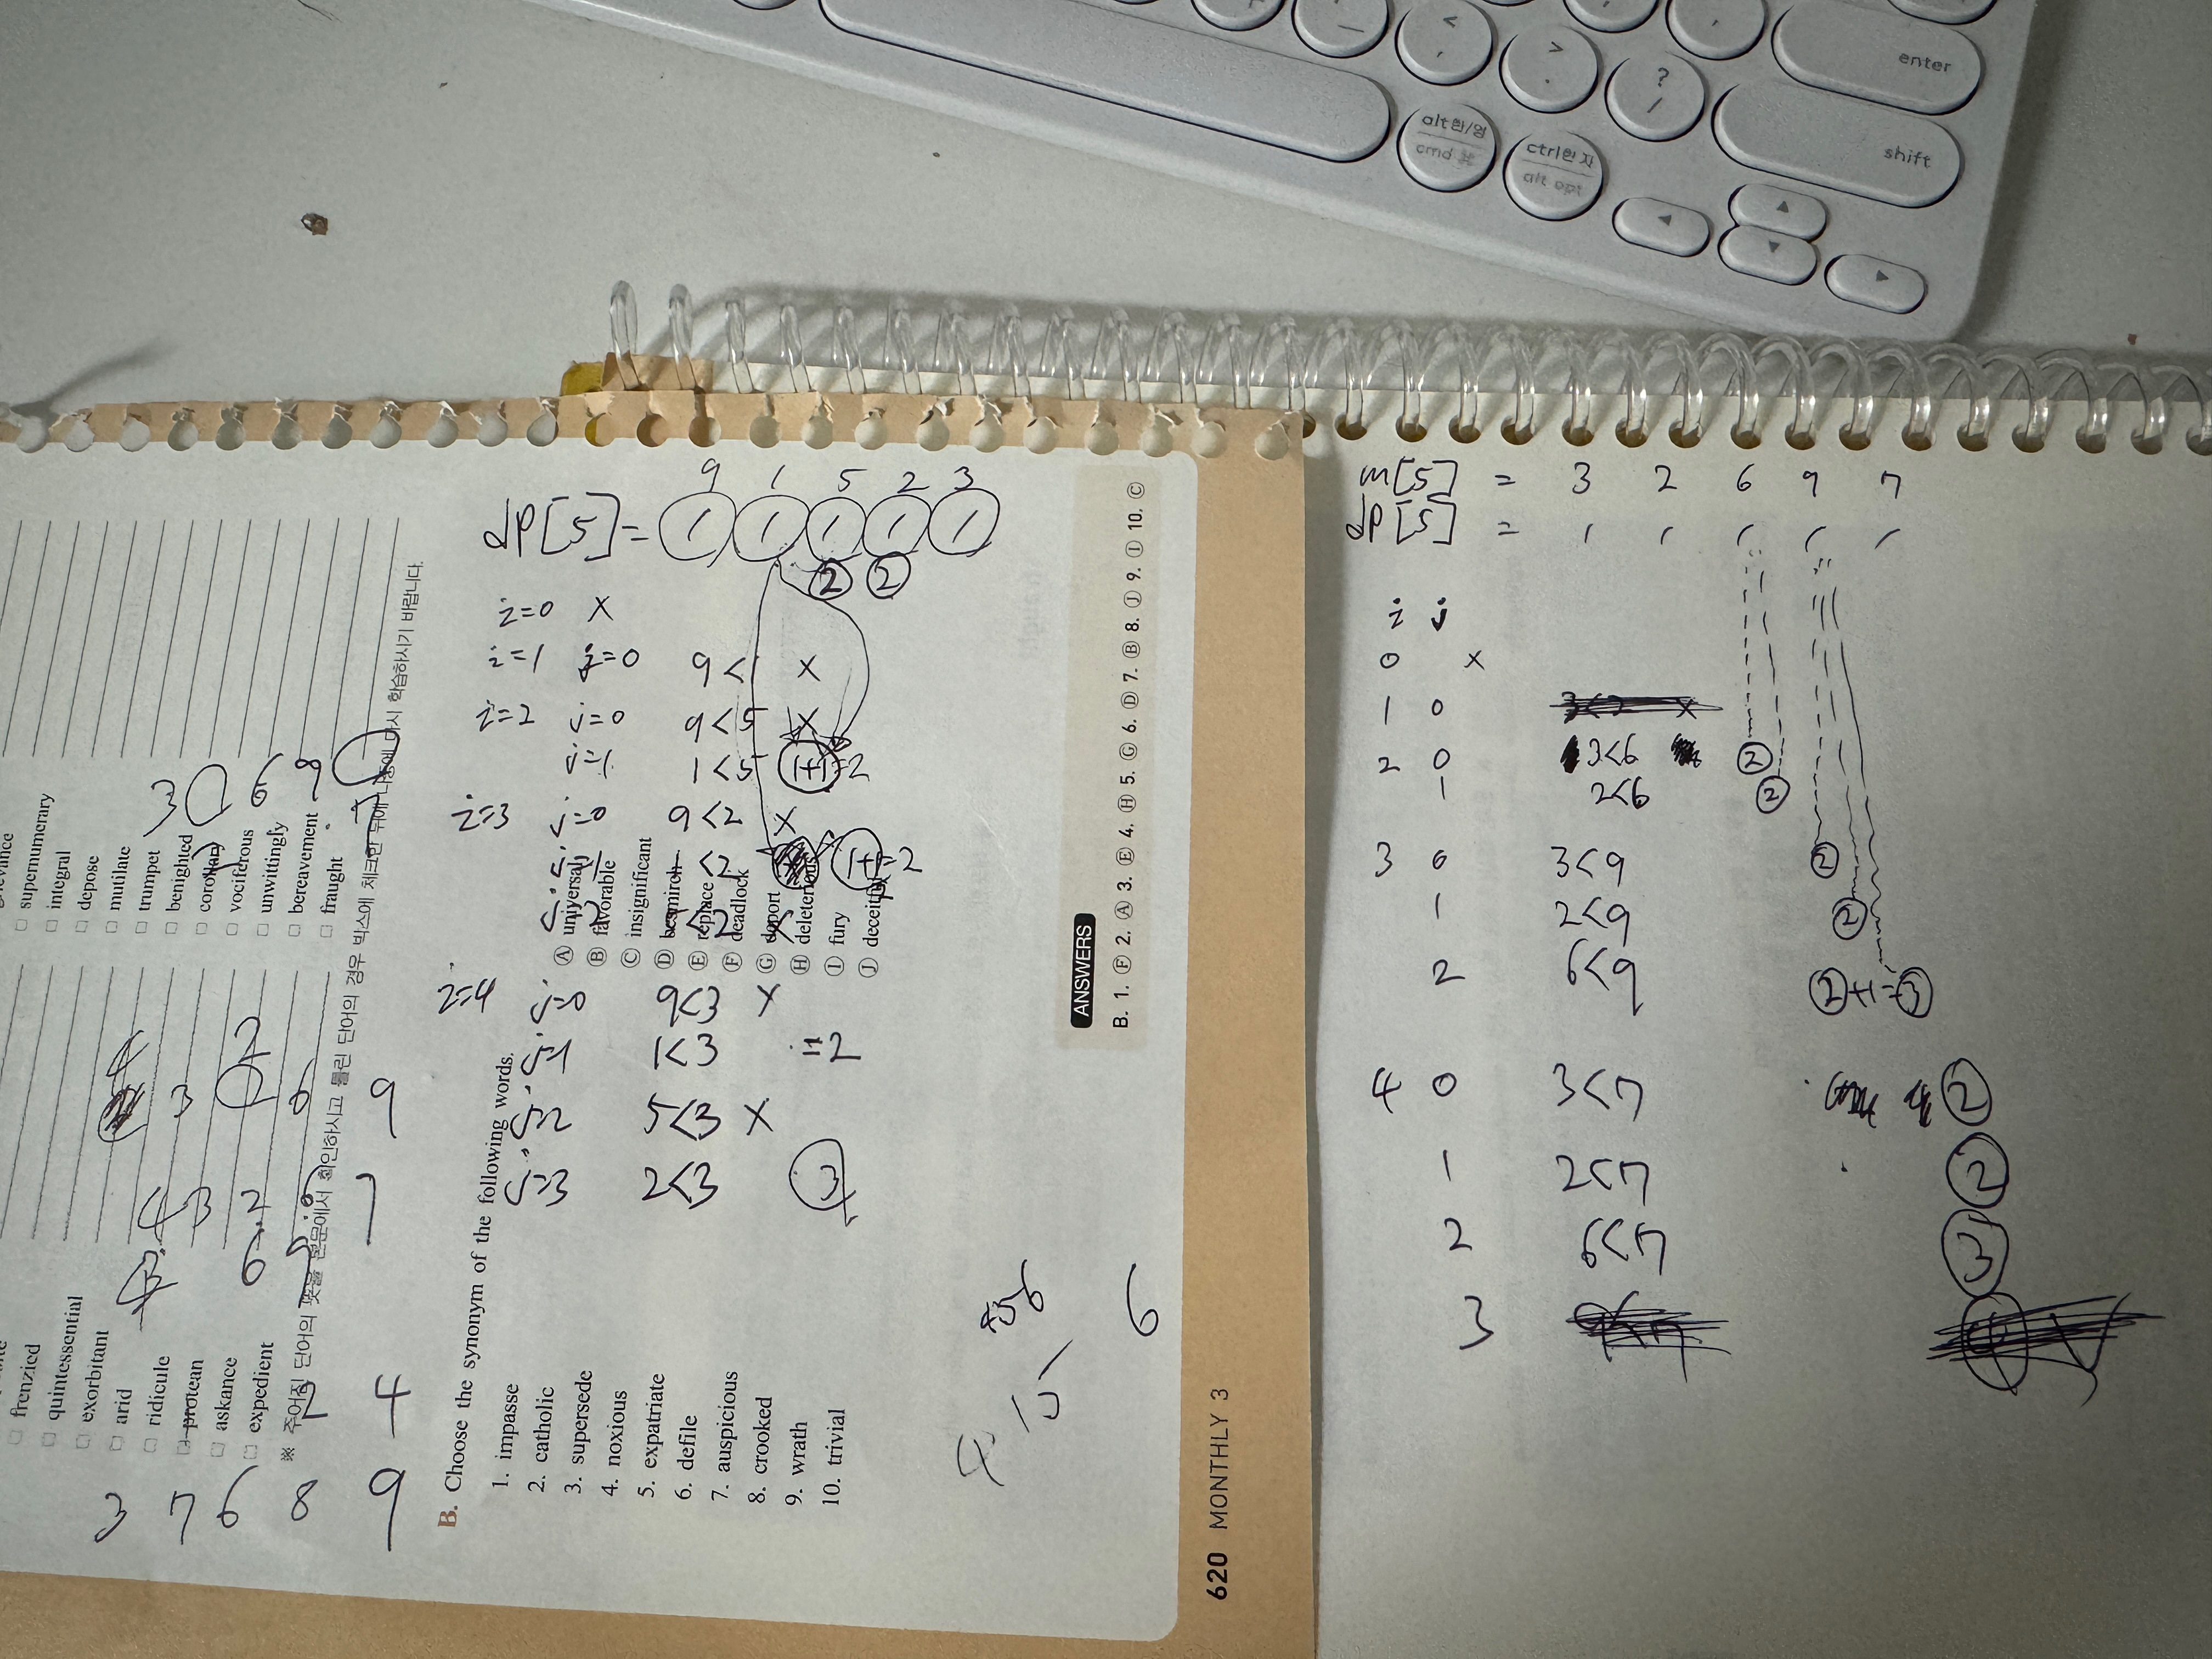 enter
shift
alt한/영
cmd ⌘
ctrl한자
alt opt
<
,
>
.
?
/
□ supernumerary
□ integral
□ depose
□ mutilate
□ trumpet
□ benighted
□ corollary
□ vociferous
□ unwittingly
□ bereavement
□ fraught
□ frenzied
□ quintessential
□ exorbitant
□ arid
□ ridicule
□ protean
□ askance
□ expedient
※ 주어진 단어의 뜻을 본문에서 확인하시고 틀린 단어의 경우 박스에 체크한 뒤에 나중에 다시 학습하시기 바랍니다.
3 7 6 8 9
B. Choose the synonym of the following words.
1. impasse
2. catholic
3. supersede
4. noxious
5. expatriate
6. defile
7. auspicious
8. crooked
9. wrath
10. trivial
Ⓐ universal
Ⓑ favorable
Ⓒ insignificant
Ⓓ besmirch
Ⓔ replace
Ⓕ deadlock
Ⓖ deport
Ⓗ deleterious
Ⓘ fury
Ⓙ deceitful
ANSWERS
B. 1. Ⓕ 2. Ⓐ 3. Ⓔ 4. Ⓗ 5. Ⓖ 6. Ⓓ 7. Ⓑ 8. Ⓙ 9. Ⓘ 10. Ⓒ
620 MONTHLY 3
9 1 5 2 3
dp[5]= 1 1 1 1 1
2 2
i=0 X
i=1 j=0 9<1 X
i=2 j=0 9<5 X
j=1 1<5 1+1=2
i=3 j=0 9<2 X
<2 1+1=2
i=4 j=0 9<3 X
j=1 1<3 =2
j=2 5<3 X
j=3 2<3 3
6
m[5] = 3 2 6 9 7
dp[5] = 1 1 1 1 1
i j
0 X
1 0 3<2 X
2 0 3<6 2
1 2<6 2
3 0 3<9 2
1 2<9 2
2 6<9 2+1=3
4 0 3<7 2
1 2<7 2
2 6<7 3
3